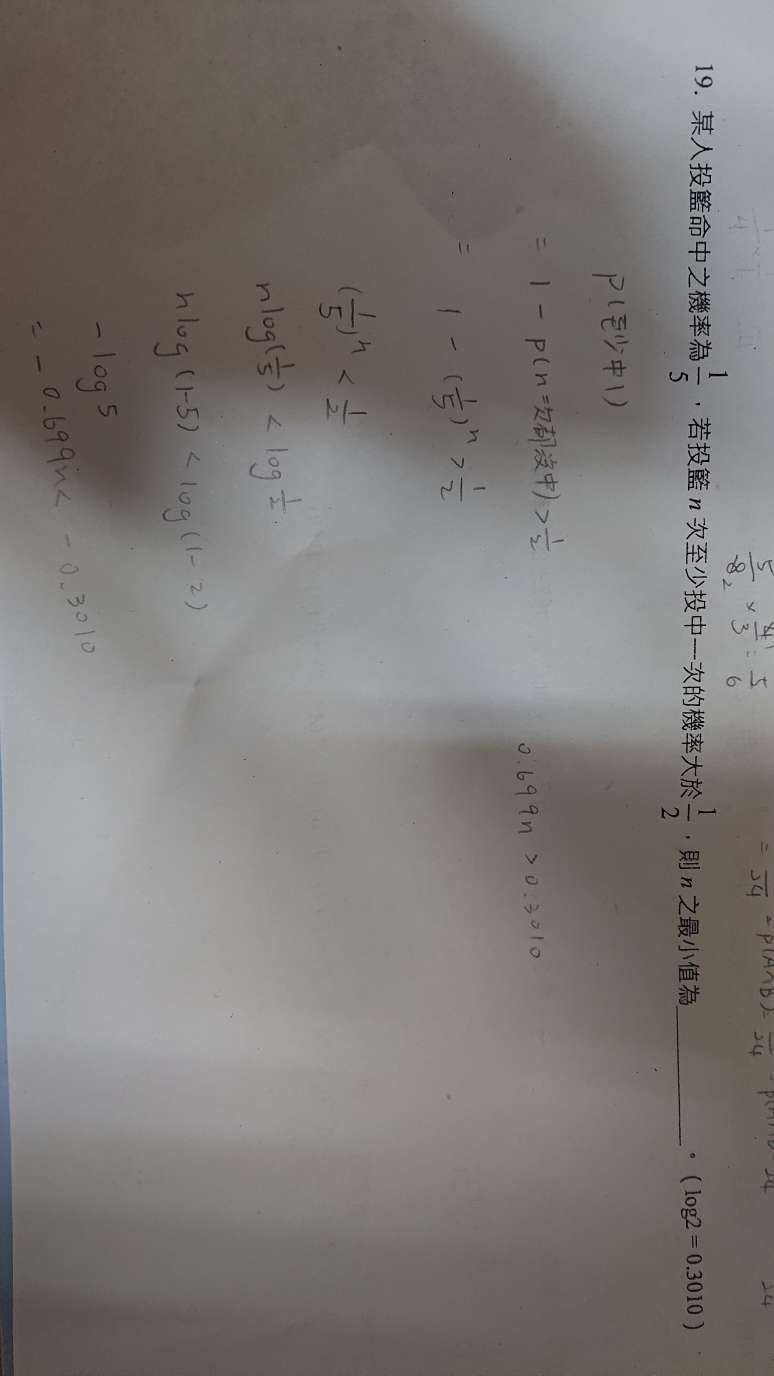 19. 某人投籃命中之機率為 1/5，若投籃 n 次至少投中一次的機率大於 1/2，則 n 之最小值為________。（log2 = 0.3010）
P(至少中1)
= 1 - P(n次都沒中) > 1/2
= 1 - (1/5)^n > 1/2
(1/5)^n < 1/2
n log(1/5) < log 1/2
n log(1-5) < log(1-2)
- log 5
= - 0.699n < - 0.3010
0.699n > 0.3010
5/8 × 4/3 = 5/6